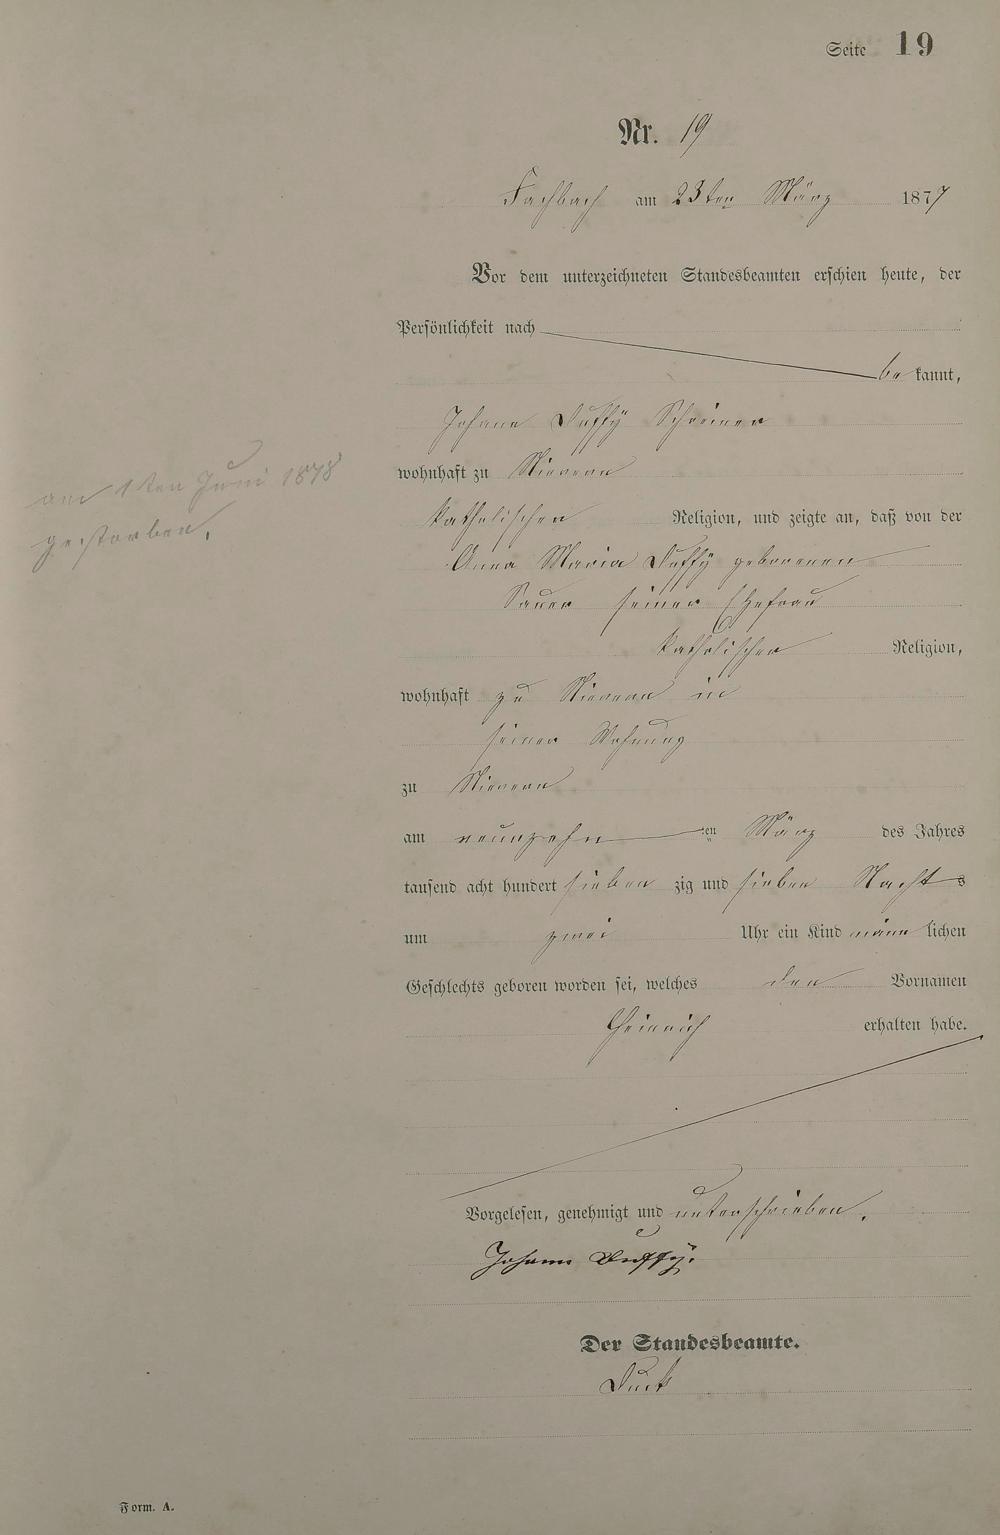 Seite 19
Nr. 19
Fachbach am 23ten März 1877
Vor dem unterzeichneten Standesbeamten erschien heute, der
Persönlichkeit nach
be kannt,
Johann Duffy Schreiner
wohnhaft zu Nievern
katholischer Religion, und zeigte an, daß von der
Anna Maria Duffy geborenen
Sauer seiner Ehefrau
katholischer Religion,
wohnhaft zu Nievern in
seiner Wohnung
zu Nievern
am neunzehn ten März des Jahres
tausend acht hundert sieben zig und sieben Nacht s
um zwei Uhr ein Kind männ lichen
Geschlechts geboren worden sei, welches den Vornamen
Heinrich erhalten habe.
am 1ten Juni 1878
gestorben.
Vorgelesen, genehmigt und unterschrieben.
Johann Duffy.
Der Standesbeamte.
Form. A.